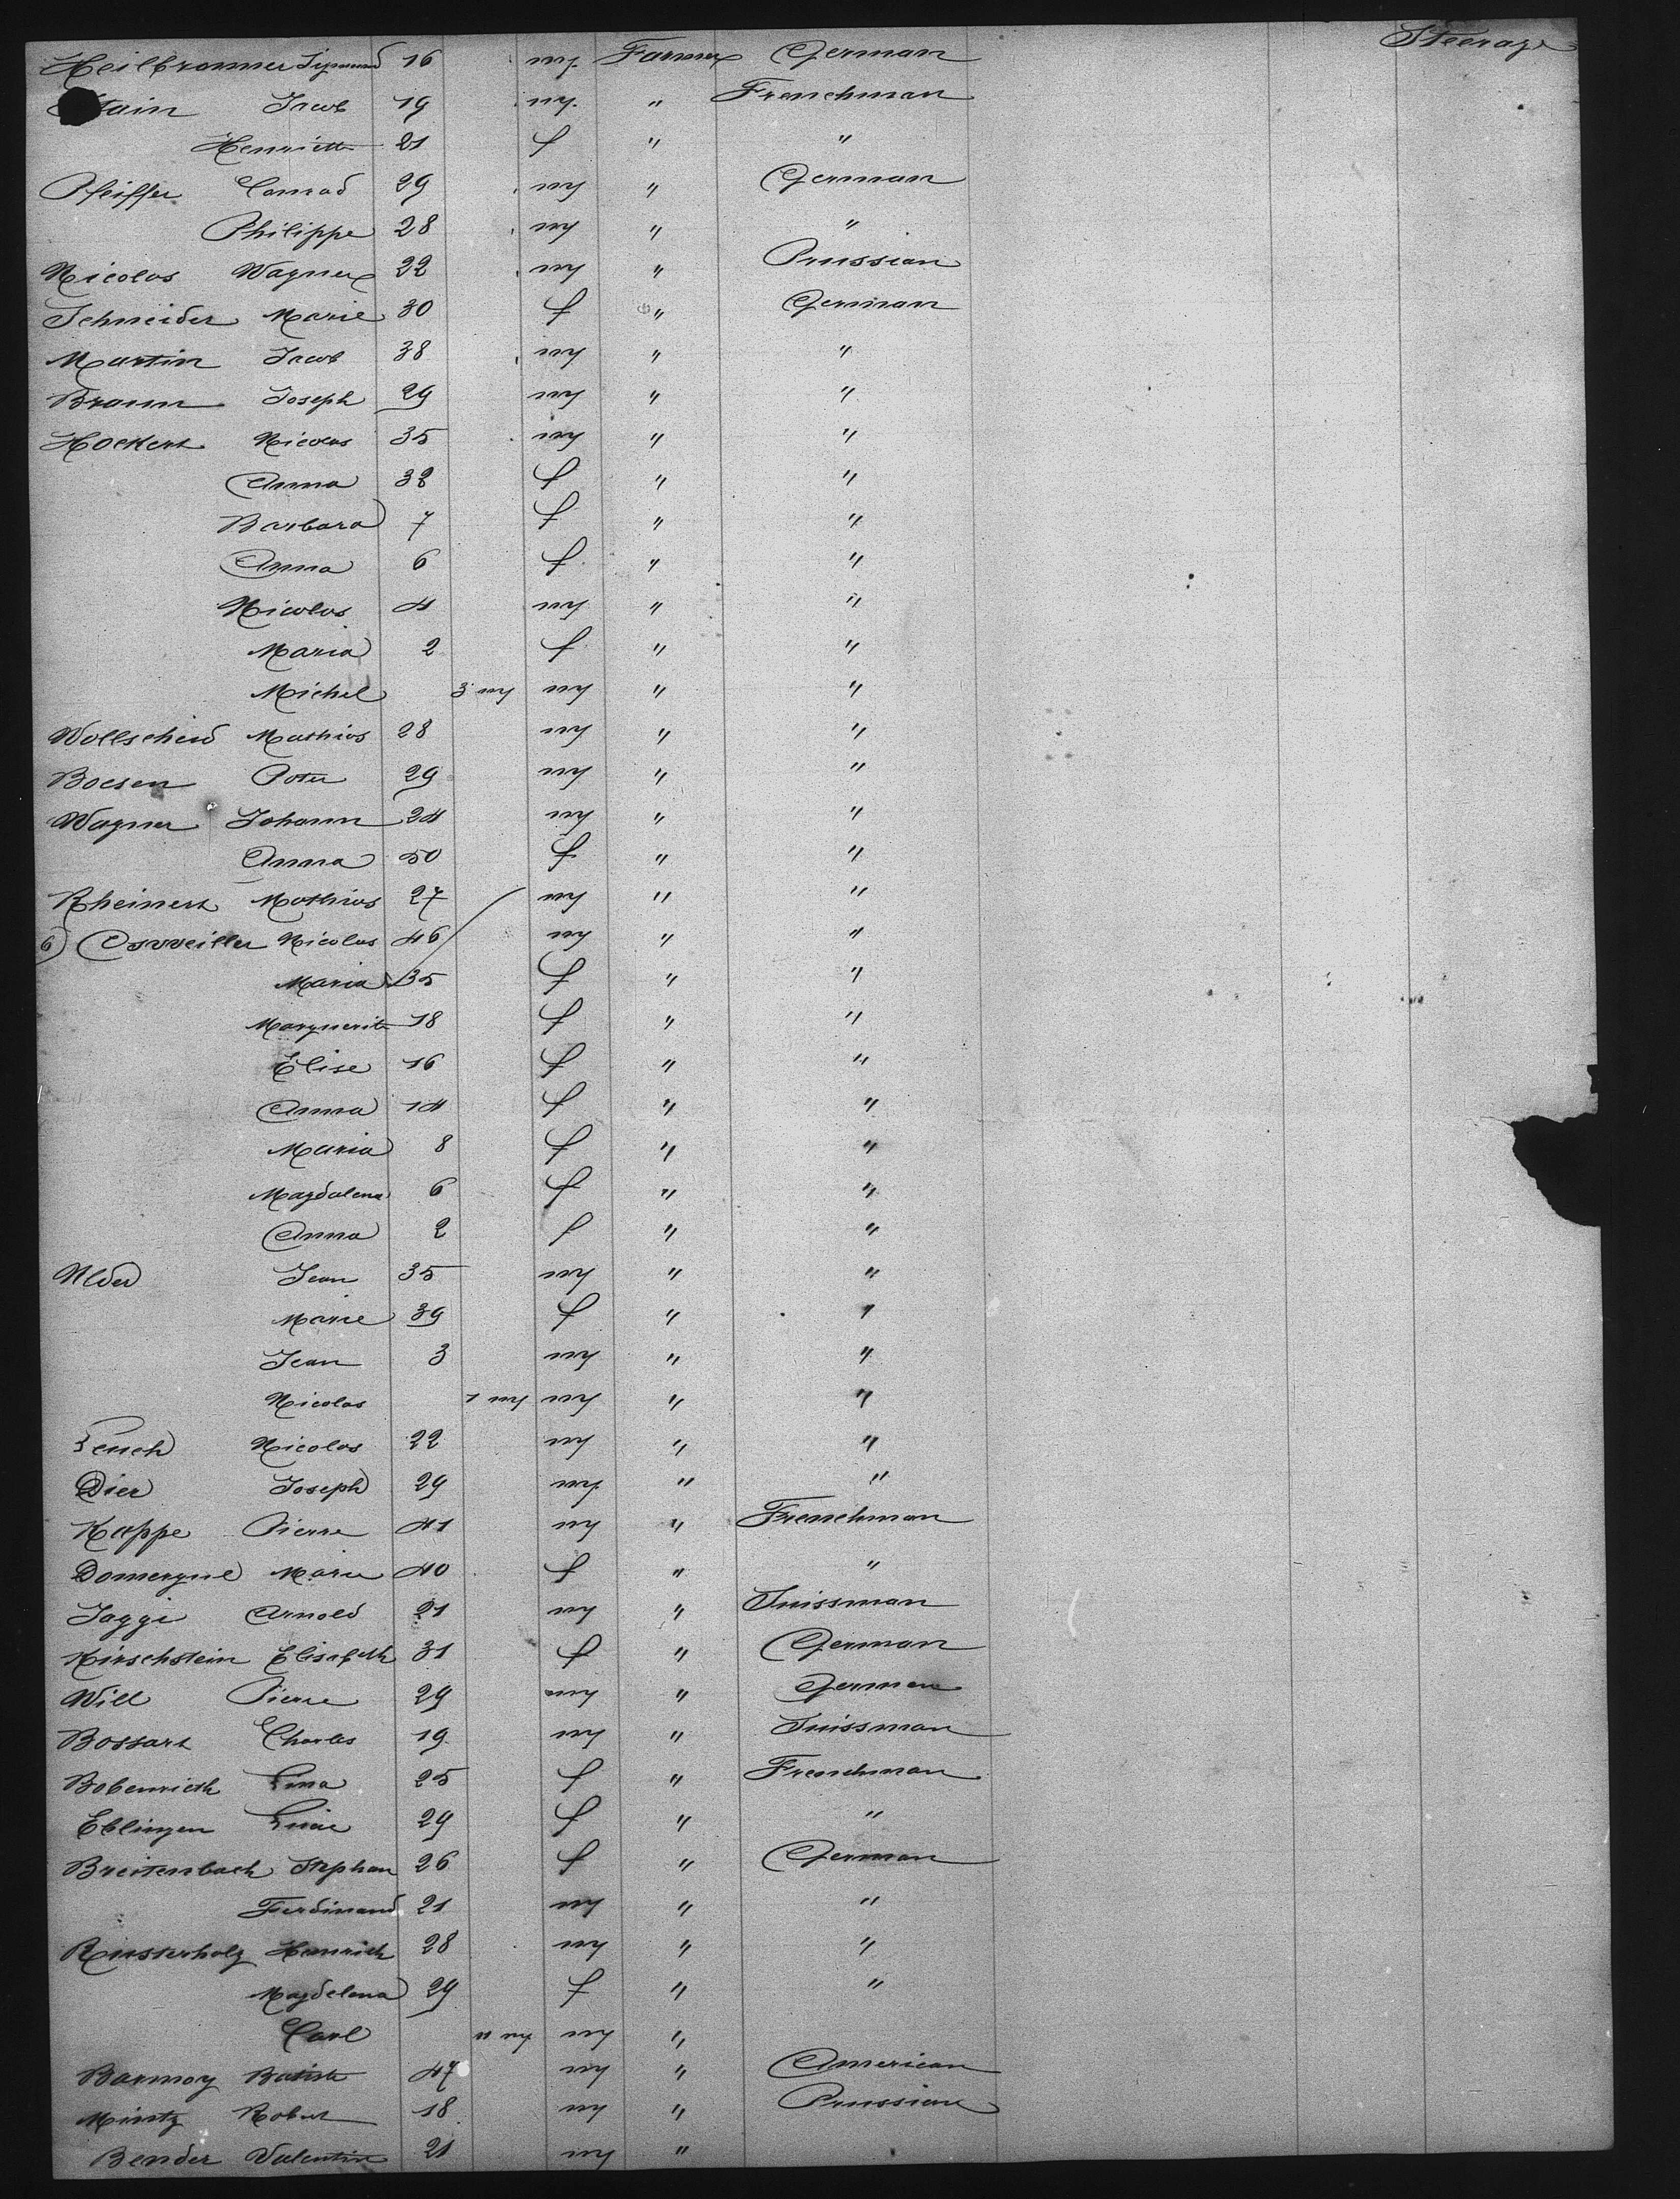 Heilbronner Sigmund 16 m Farmer German Steerage
tain Jacob 19 m " Frenchman
Henriette 21 f " "
Pfeiffer Conrad 29 m " German
Philippe 28 m " "
Nicolas Wagner 22 m " Prussian
Schneider Marie 30 f " German
Martin Jacob 38 m " "
Braun Joseph 29 m " "
Hockert Nicolas 35 m " "
Anna 32 f " "
Barbara 7 f " "
Anna 6 f " "
Nicolas 4 m " "
Maria 2 f " "
Michel 3 m m " "
Wollscheid Mathias 28 m " "
Boesen Peter 29 m " "
Wagner Johann 24 m " "
Anna 50 f " "
Rheinert Mathias 27 m " "
6) Osweiller Nicolas 46 m " "
Maria 35 f " "
Marguerite 18 f " "
Elise 16 f " "
Anna 14 f " "
Maria 8 f " "
Magdalena 6 f " "
Anna 2 f " "
Jean 35 m " "
Marie 39 f " "
Jean 3 m " "
Nicolas 1 m m " "
Nicolas 22 m " "
Dier Joseph 29 m " "
Kappe Pierre 41 m " Frenchman
Domergue Marie 40 f " "
Jaggi Arnold 21 m " Suissman
Hirschstein Elisabeth 31 f " German
Will Pierre 29 m " German
Bossart Charles 19 m " Suissman
Bobenrieth Lina 25 f " Frenchman
Eblingen Lucie 29 f " "
Breitenbach Stephan 26 f " German
Ferdinand 21 m " "
Rusterholz Heinrich 28 m " "
Magdelena 29 f " "
Carl 11 m m "
Barmoy Batiste 47 m " American
Mintz Robert 18 m " Prussian
Bender Valentin 21 m "